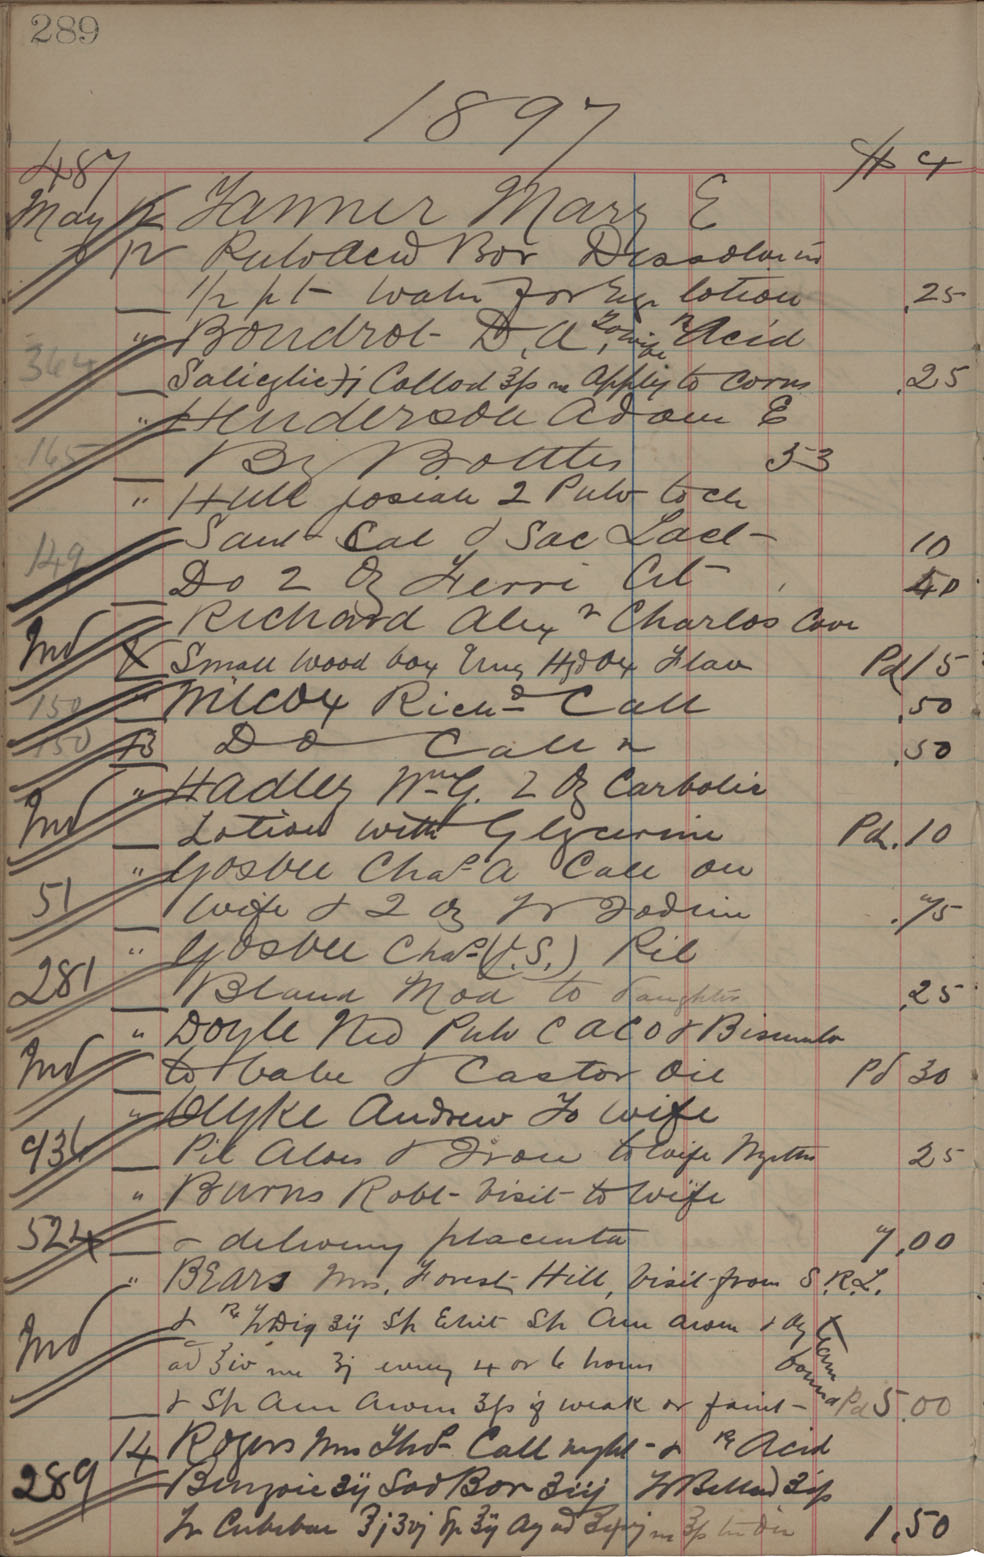 289
1897
487 $ c
May 12 Tanner Mary E
" 12 Pulv Acid Bor Dissolve in
1/2 pt water for Eye lotion .25
" Boudrot D. A. To wife ℞ Acid
364 Salicylic ʒj Collod ʒſs m Apply to corns .25
" Henderson Adam E
165 By Bottles 53
" Hull Josiah 2 Pulv to ch
149 Sant Cal & Sac Lact 10
Do 2 oz Ferri Cit 40
" Richard Alex & Charlos Cove
Ind X Small wood box Ung Hyd Ox Flav Pd 15
150 " Wilcox Richd Call .50
150 13 Do Call .50
" Hadley Wm G. 2 oz Carbolic
Ind Lotion with Glycerine Pd. .10
" Gosbee Chas A Call on
51 wife & 2 oz Tr Iodine .75
" Gosbee Chas (J.S.) Pil
281 Bland Mod to daughter .25
" Doyle Ned Pulv C aco & Bismuth
Ind to babe & Castor Oil Pd 30
" Dyke Andrew To wife
931 Pil Aloes & Iron to wife 25
" Burns Robt visit to wife
524 & delivery placenta 7.00
" BEARS Mrs. Forest Hill, visit from S.R.L.
& ℞ Tr Dig ʒij Sp Ether Sp Am arom & Aq
Ind ad ℥iv m ʒj every 4 or 6 hours
& Sp Am Arom ʒſs if weak or faint Pd 5.00
14 Rogers Mrs Thos Call night & ℞ Acid
289 Benzoic ʒij Sod Bor ʒiij Tr Bellad
Tr Cubebae 1.50